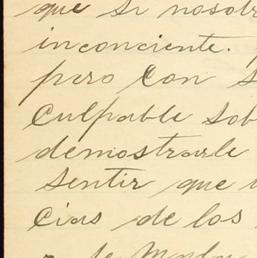 que si nosotr
inconciente.
pero con s
culpable sob
demostrarle
sentir que
cias de los